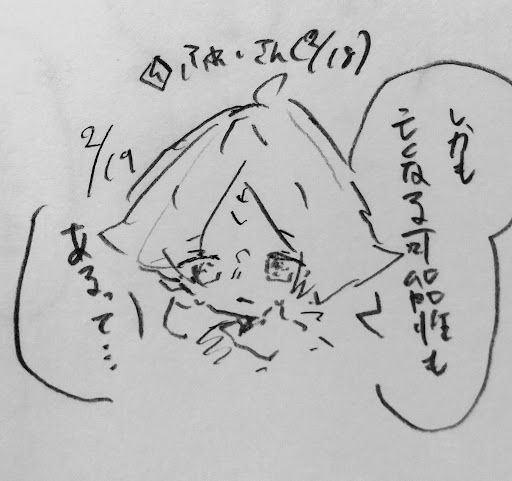 さん(2/18)
2/19
しかも
亡くなる可能性も
あるって…